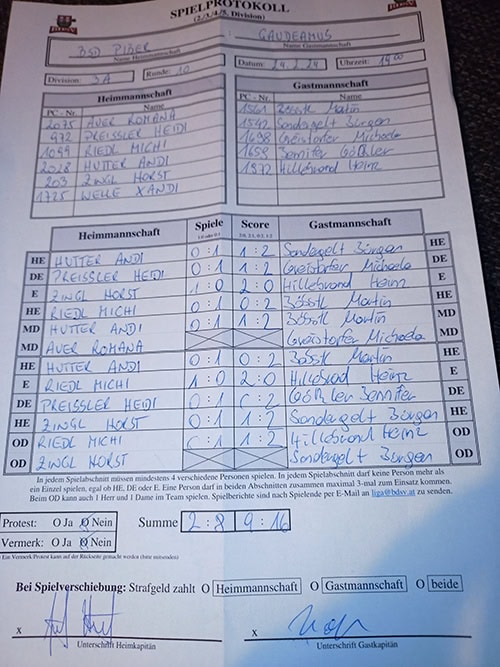 SPIELPROTOKOLL
(2./3./4./5. Division)
BDSV
BSD PIBER : GAUDEAMUS
Name Heimmannschaft Name Gastmannschaft
Division: 3A Runde: 10 Datum: 24.2.24 Uhrzeit: 14:00
Heimmannschaft Gastmannschaft
PC - Nr. Name PC - Nr. Name
2075 AUER ROMANA 1561 Bösstl Martin
972 PREISSLER HEIDI 1542 Sondegelt Jürgen
1099 RIEDL MICHI 1698 Greistorfer Michaela
2028 HUTTER ANDI 1659 Jennifer Gößler
203 ZINGL HORST 1972 Hillebrand Heinz
1725 WELLE XANDI
Heimmannschaft Spiele Score Gastmannschaft
HE HUTTER ANDI 0 : 1 1 : 2 Sondegelt Jürgen HE
DE PREISSLER HEIDI 0 : 1 1 : 2 Greistorfer Michaela DE
E ZINGL HORST 1 : 0 2 : 0 Hillebrand Heinz E
HE RIEDL MICHI 0 : 1 0 : 2 Bösstl Martin HE
MD HUTTER ANDI 0 : 1 1 : 2 Bösstl Martin MD
MD AUER ROMANA Greistorfer Michaela MD
HE HUTTER ANDI 0 : 1 0 : 2 Bösstl Martin HE
E RIEDL MICHI 1 : 0 2 : 0 Hillebrand Heinz E
DE PREISSLER HEIDI 0 : 1 0 : 2 Gößler Jennifer DE
HE ZINGL HORST 0 : 1 1 : 2 Sondegelt Jürgen HE
OD RIEDL MICHI 0 : 1 1 : 2 Hillebrand Heinz OD
OD ZINGL HORST Sondegelt Jürgen OD
In jedem Spielabschnitt müssen mindestens 4 verschiedene Personen spielen. In jedem Spielabschnitt darf keine Person mehr als
ein Einzel spielen, egal ob HE, DE oder E. Eine Person darf in beiden Abschnitten zusammen maximal 3-mal zum Einsatz kommen.
Beim OD kann auch 1 Herr und 1 Dame im Team spielen. Spielberichte sind nach Spielende per E-Mail an liga@bdsv.at zu senden.
Protest: O Ja O Nein Summe 2 : 8 9 : 16
Vermerk: O Ja O Nein
Ein Vermerk/Protest kann auf der Rückseite gemacht werden (bitte mitsenden)
Bei Spielverschiebung: Strafgeld zahlt O Heimmannschaft O Gastmannschaft O beide
x x
Unterschrift Heimkapitän Unterschrift Gastkapitän